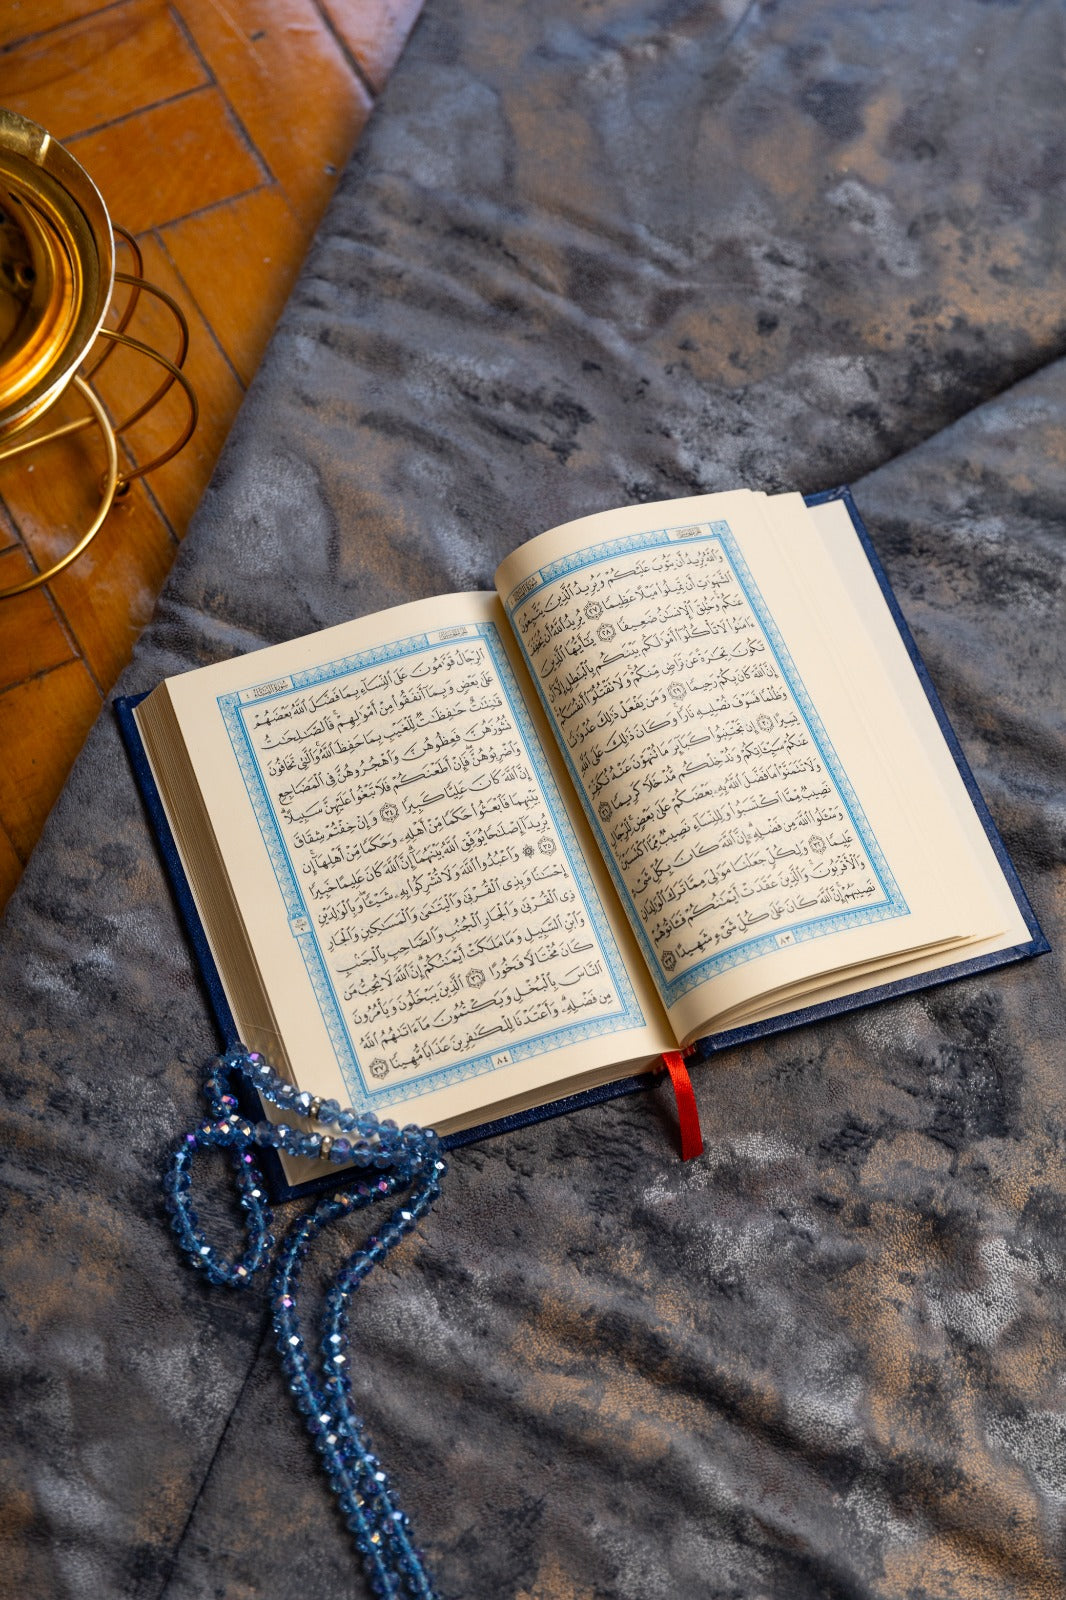 سُورَةُ النِّسَاءِ
وَٱللَّهُ يُرِيدُ أَن يَتُوبَ عَلَيْكُمْ وَيُرِيدُ ٱلَّذِينَ يَتَّبِعُونَ
ٱلشَّهَوَٰتِ أَن تَمِيلُوا۟ مَيْلًا عَظِيمًا ٢٧ يُرِيدُ ٱللَّهُ أَن يُخَفِّفَ
عَنكُمْ وَخُلِقَ ٱلْإِنسَٰنُ ضَعِيفًا ٢٨ يَٰٓأَيُّهَا ٱلَّذِينَ
ءَامَنُوا۟ لَا تَأْكُلُوٓا۟ أَمْوَٰلَكُم بَيْنَكُم بِٱلْبَٰطِلِ إِلَّآ أَن
تَكُونَ تِجَٰرَةً عَن تَرَاضٍ مِّنكُمْ وَلَا تَقْتُلُوٓا۟ أَنفُسَكُمْ
إِنَّ ٱللَّهَ كَانَ بِكُمْ رَحِيمًا ٢٩ وَمَن يَفْعَلْ ذَٰلِكَ عُدْوَٰنًا
وَظُلْمًا فَسَوْفَ نُصْلِيهِ نَارًا وَكَانَ ذَٰلِكَ عَلَى ٱللَّهِ
يَسِيرًا ٣٠ إِن تَجْتَنِبُوا۟ كَبَآئِرَ مَا تُنْهَوْنَ عَنْهُ نُكَفِّرْ
عَنكُمْ سَيِّـَٔاتِكُمْ وَنُدْخِلْكُم مُّدْخَلًا كَرِيمًا ٣١
وَلَا تَتَمَنَّوْا۟ مَا فَضَّلَ ٱللَّهُ بِهِۦ بَعْضَكُمْ عَلَىٰ بَعْضٍ لِّلرِّجَالِ
نَصِيبٌ مِّمَّا ٱكْتَسَبُوا۟ وَلِلنِّسَآءِ نَصِيبٌ مِّمَّا ٱكْتَسَبْنَ
وَسْـَٔلُوا۟ ٱللَّهَ مِن فَضْلِهِۦٓ إِنَّ ٱللَّهَ كَانَ بِكُلِّ شَىْءٍ
عَلِيمًا ٣٢ وَلِكُلٍّ جَعَلْنَا مَوَٰلِىَ مِمَّا تَرَكَ ٱلْوَٰلِدَانِ
وَٱلْأَقْرَبُونَ وَٱلَّذِينَ عَقَدَتْ أَيْمَٰنُكُمْ فَـَٔاتُوهُمْ
نَصِيبَهُمْ إِنَّ ٱللَّهَ كَانَ عَلَىٰ كُلِّ شَىْءٍ شَهِيدًا ٣٣
٨٣
سُورَةُ النِّسَاءِ ٤
ٱلرِّجَالُ قَوَّٰمُونَ عَلَى ٱلنِّسَآءِ بِمَا فَضَّلَ ٱللَّهُ بَعْضَهُمْ
عَلَىٰ بَعْضٍ وَبِمَآ أَنفَقُوا۟ مِنْ أَمْوَٰلِهِمْ فَٱلصَّٰلِحَٰتُ
قَٰنِتَٰتٌ حَٰفِظَٰتٌ لِّلْغَيْبِ بِمَا حَفِظَ ٱللَّهُ وَٱلَّٰتِى تَخَافُونَ
نُشُوزَهُنَّ فَعِظُوهُنَّ وَٱهْجُرُوهُنَّ فِى ٱلْمَضَاجِعِ
وَٱضْرِبُوهُنَّ فَإِنْ أَطَعْنَكُمْ فَلَا تَبْغُوا۟ عَلَيْهِنَّ سَبِيلًا
إِنَّ ٱللَّهَ كَانَ عَلِيًّا كَبِيرًا ٣٤ وَإِنْ خِفْتُمْ شِقَاقَ
بَيْنِهِمَا فَٱبْعَثُوا۟ حَكَمًا مِّنْ أَهْلِهِۦ وَحَكَمًا مِّنْ أَهْلِهَآ إِن
يُرِيدَآ إِصْلَٰحًا يُوَفِّقِ ٱللَّهُ بَيْنَهُمَآ إِنَّ ٱللَّهَ كَانَ عَلِيمًا خَبِيرًا
٣٥ ۞ وَٱعْبُدُوا۟ ٱللَّهَ وَلَا تُشْرِكُوا۟ بِهِۦ شَيْـًٔا وَبِٱلْوَٰلِدَيْنِ
إِحْسَٰنًا وَبِذِى ٱلْقُرْبَىٰ وَٱلْيَتَٰمَىٰ وَٱلْمَسَٰكِينِ وَٱلْجَارِ
ذِى ٱلْقُرْبَىٰ وَٱلْجَارِ ٱلْجُنُبِ وَٱلصَّاحِبِ بِٱلْجَنۢبِ
وَٱبْنِ ٱلسَّبِيلِ وَمَا مَلَكَتْ أَيْمَٰنُكُمْ إِنَّ ٱللَّهَ لَا يُحِبُّ مَن
كَانَ مُخْتَالًا فَخُورًا ٣٦ ٱلَّذِينَ يَبْخَلُونَ وَيَأْمُرُونَ
ٱلنَّاسَ بِٱلْبُخْلِ وَيَكْتُمُونَ مَآ ءَاتَىٰهُمُ ٱللَّهُ
مِن فَضْلِهِۦ وَأَعْتَدْنَا لِلْكَٰفِرِينَ عَذَابًا مُّهِينًا ٣٧
٨٤